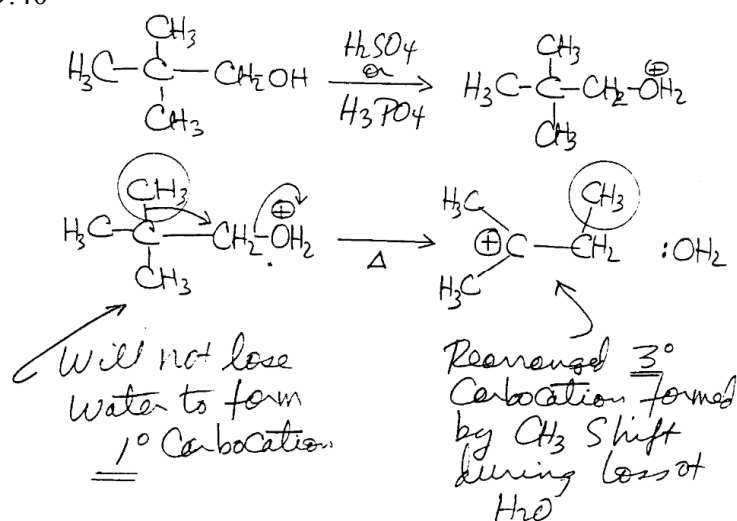 CH3
H3C-C-CH2OH
CH3
H2SO4
or
H3PO4
CH3
H3C-C-CH2-OH2
⊕
CH3
CH3
H3C-C-CH2-OH2
⊕
CH3
Δ
H3C
CH3
⊕ C-CH2 :OH2
H3C
Will not lose
Water to form
1° Carbocation
Rearranged 3°
Carbocation formed
by CH3 Shift
during loss of
H2O